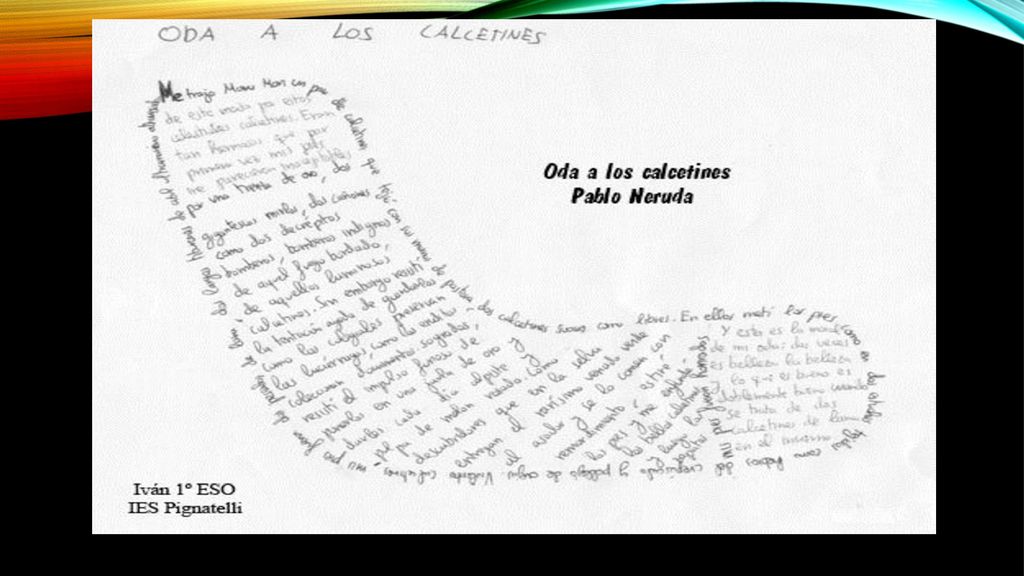 ODA A LOS CALCETINES
Oda a los calcetines
Pablo Neruda
Me trajo Maru Mori un par de calcetines que tejió con sus manos de pastora dos calcetines suaves como liebres. En ellos metí los pies como en dos estuches tejidos con hebras del crepúsculo y pellejo de ovejas. Violentos calcetines, mis pies fueron
de este modo por estos
celestiales calcetines. Eran
tan hermosos que por
primera vez mis pies
me parecieron inaceptables
por una trenza de oro, dos
gigantescos mirlos, dos cañones
como dos decrépitos
bomberos, bomberos indignos
de aquel fuego bordado,
de aquellos luminosos
calcetines. Sin embargo resistí
la tentación aguda de guardarlos
como los colegiales preservan
las luciérnagas, como los eruditos
coleccionan documentos sagrados,
resistí el impulso furioso de
ponerlos en una jaula de oro y
darles cada día alpiste y
pulpa de melón rosado. Como
descubridores que en la selva
entregan el rarísimo venado verde
al asador y se lo comen con
remordimiento, estiré
los pies y me enfundé
los bellos calcetines
y luego los zapatos
Y esta es la moral
de mi oda: dos veces
es belleza la belleza
y lo que es bueno es
doblemente bueno cuando
se trata de dos
calcetines de lana
en el invierno
Iván 1º ESO
IES Pignatelli